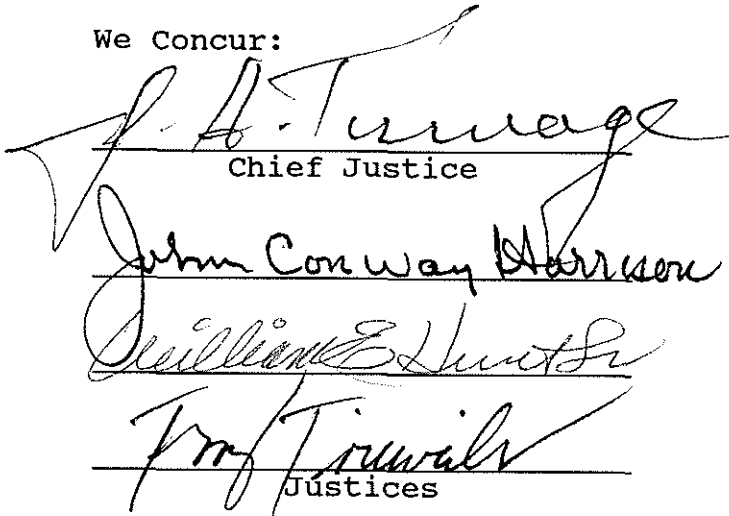 We Concur:
J. A. Turnage
Chief Justice
John Conway Harrison
William E Hunt Sr
Justices